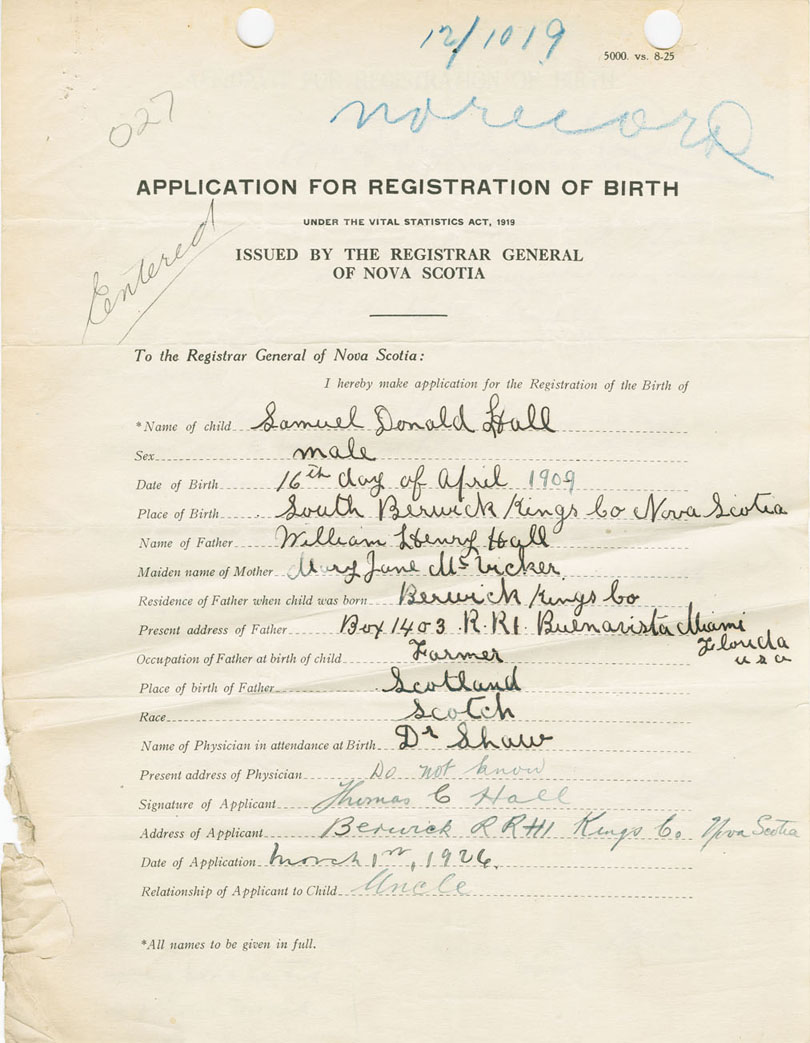 12/1019
5000. vs. 8-25
027
no record
APPLICATION FOR REGISTRATION OF BIRTH
UNDER THE VITAL STATISTICS ACT, 1919
Entered
ISSUED BY THE REGISTRAR GENERAL
OF NOVA SCOTIA
To the Registrar General of Nova Scotia:
I hereby make application for the Registration of the Birth of
*Name of child Samuel Donald Hall
Sex male
Date of Birth 16th day of April 1909
Place of Birth South Berwick Kings Co Nova Scotia
Name of Father William Henry Hall
Maiden name of Mother Mary Jane McVicker
Residence of Father when child was born Berwick Kings Co
Present address of Father Box 1403 R.R1 Buenavista Miami
Florida
Occupation of Father at birth of child Farmer
usa
Place of birth of Father Scotland
Race Scotch
Name of Physician in attendance at Birth Dr Shaw
Present address of Physician Do not know
Signature of Applicant Thomas C Hall
Address of Applicant Berwick R R #1 Kings Co. Nova Scotia
Date of Application March 1st, 1926.
Relationship of Applicant to Child Uncle
*All names to be given in full.